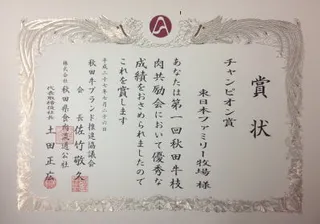 賞状
チャンピオン賞
東日本ファミリー牧場 様
あなたは第一回秋田牛枝
肉共励会において優秀な
成績をおさめられましたので
これを賞します
平成二十七年七月二十六日
秋田牛ブランド推進協議会
会長 佐竹敬久
株式会社 秋田県食肉流通公社
代表取締役社長 土田正広